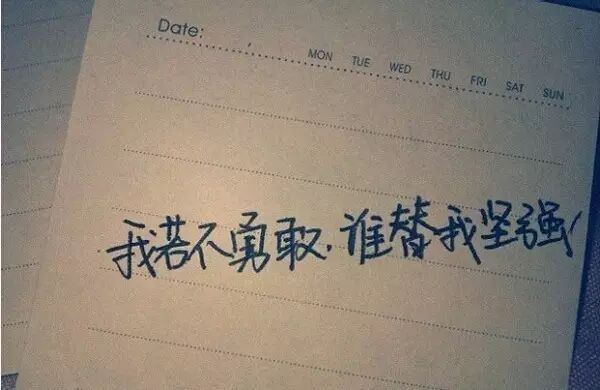 Date: ,
MON TUE WED THU FRI SAT SUN
我若不勇敢.谁替我坚强